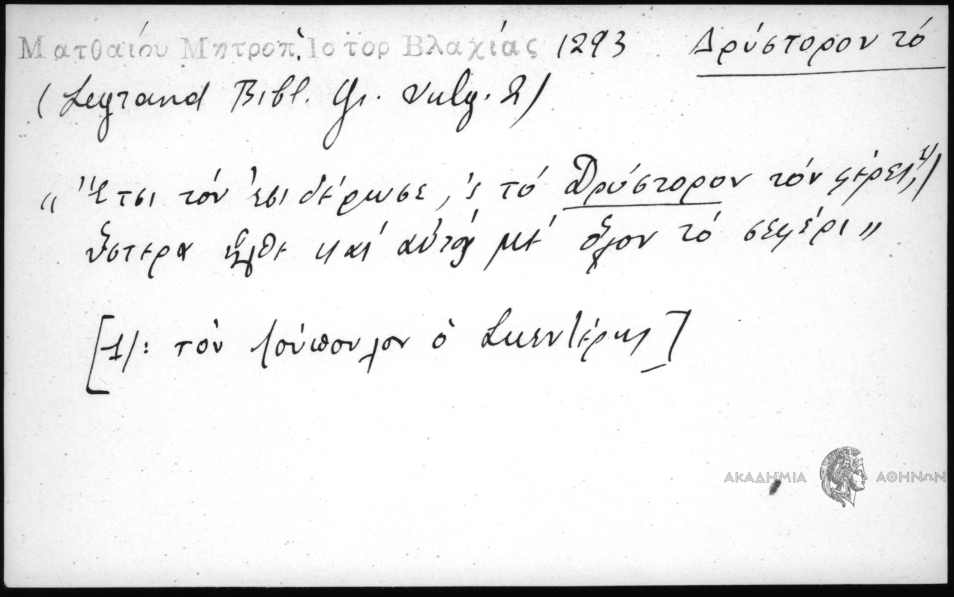 Ματθαίου Μητροπ, Ιστορ Βλαχίας 1293 Δρύστορον τό
(Legrand Bibl. Gr. Vulg. 2)
„ Ἔτσι τόν ἐσιδέρωσε, 'ς τό Δρύστορον τόν φέρει, 1)
ὕστερα ἦλθε καί αὐτός μέ ὅλον τό σεφέρι „
[1): τόν Λούπουλον ὁ Σκεντέρης]
ΑΚΑΔΗΜΙΑ ΑΘΗΝΩΝ